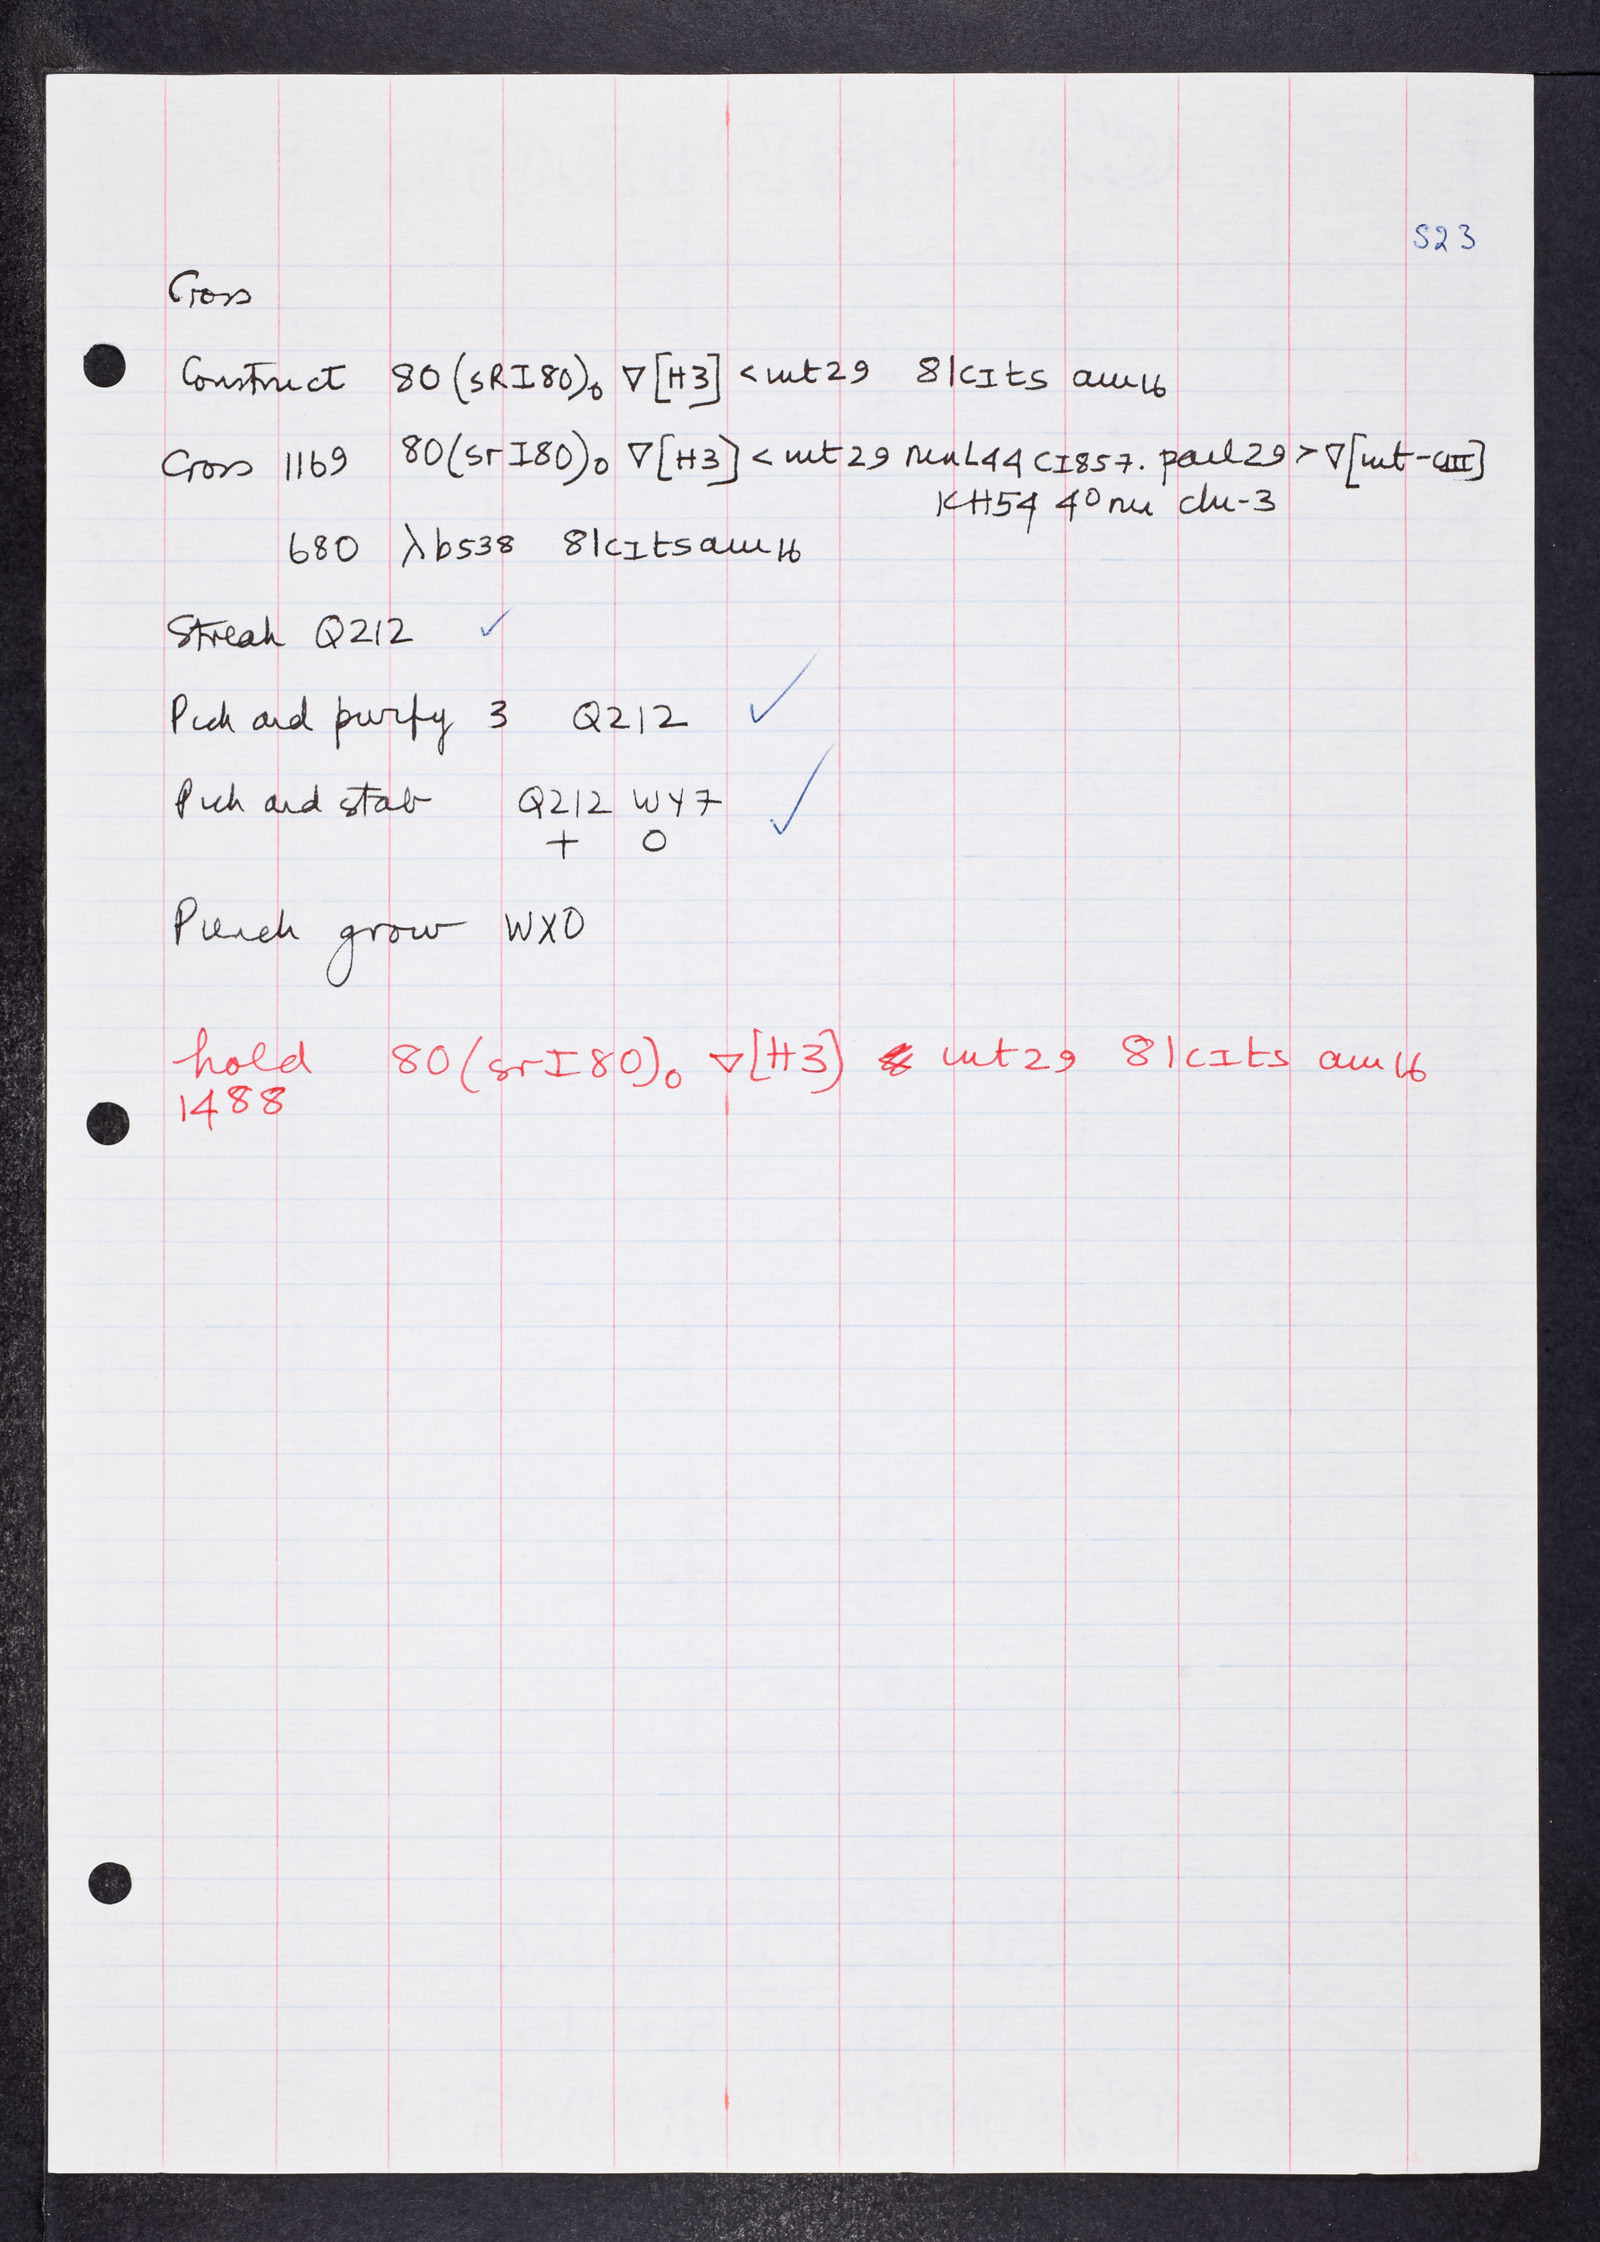 S23
Cross
Construct 80(sRI80)₀ ∇[H3] < int29 81cIts am16
Cross 1169 80(srI80)₀ ∇[H3] < int29 ninL44 cI857. pael29 > ∇[int-cIII]
KH54 40 nin chi-3
680 λb538 81cIts am16
Streak Q212 ✓
Pick and purify 3 Q212 ✓
Pick and stab Q212 WY7 ✓
+ O
Punch grow WX0
hold 80(srI80)₀ ∇[H3] int29 81cIts am16
1488